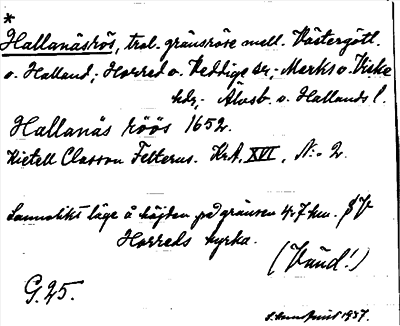 *
Hallanäsrös, trol. gränsröse mell. Västergötl.
o. Halland; Horred o. Veddige sr; Marks o. Viske
hdr; Älvsb. o. Hallands l.
Hallanäs röös 1652.
Kietell Classon Felterus. KrA, XVI, N:o 2.
Sannolikt läge å höjden på gränsen 4,7 km. SV
Horreds kyrka.
(Vänd!)
G. 25.
1937.